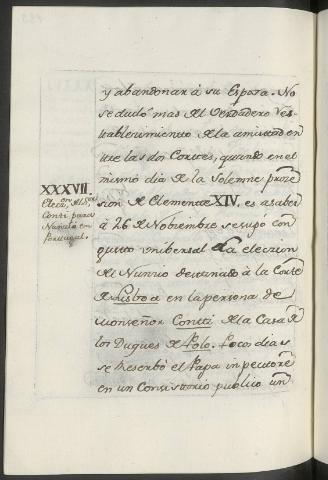 y abandonar à su Esposa. No
se dudó mas del verdadero Res-
tablecimiento de la amistad en
tre las dos Cortes, quando en el
mismo dia de la Solemne proze
sion de Clemente XIV, es a saber
à 26 de Nobiembre se supo con
gusto unibersal la eleccion
del Nunzio destinado à la Corte
de Lisboa en la persona de
Monseñor Contti de la Casa de
los Duques de Polo. Poco dias
se Reserbó el Papa in pectore
en un Consistorio publico un
XXXVII.
Elecn. del Sor.
Conti para
Nunzio en
Portugal.